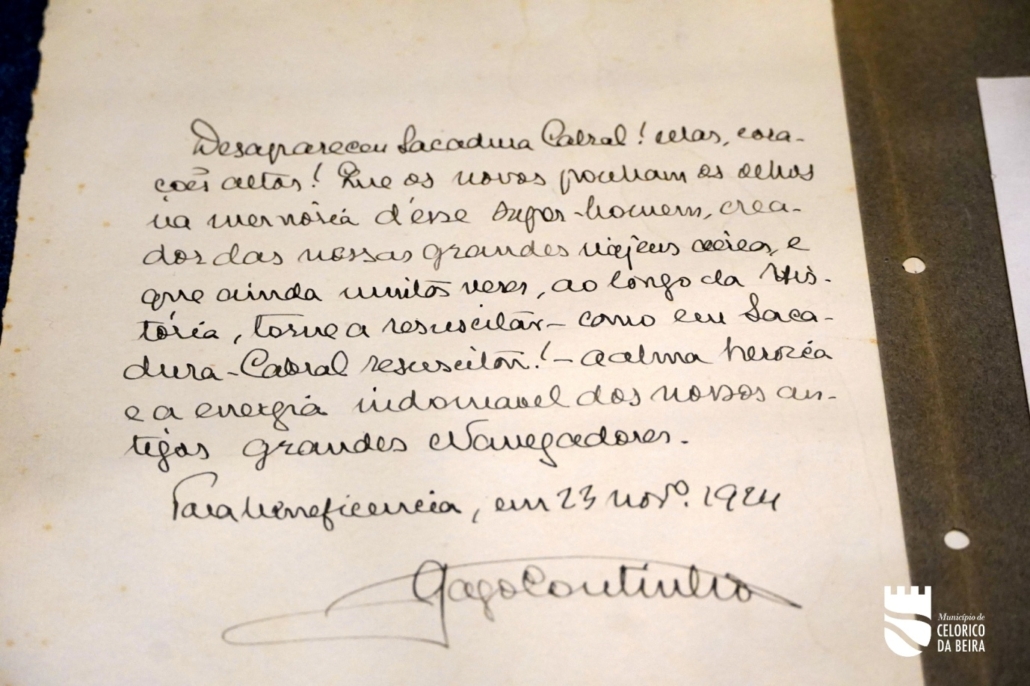 Desapareceu Sacadura Cabral! Mas, cora-
ções altos! Que os novos ponham os olhos
na memória d'ésse super-homem, crea-
dor das nossas grandes viajens aéreas, e
que ainda muitas vezes, ao longo da His-
tória, torne a resuscitar - como em Saca-
dura-Cabral resuscitou! - a alma heroica
e a energia indomavel dos nossos an-
tigos grandes Navegadores.
Para beneficencia, em 23 novº. 1924
Gago Coutinho
Município de
CELORICO
DA BEIRA